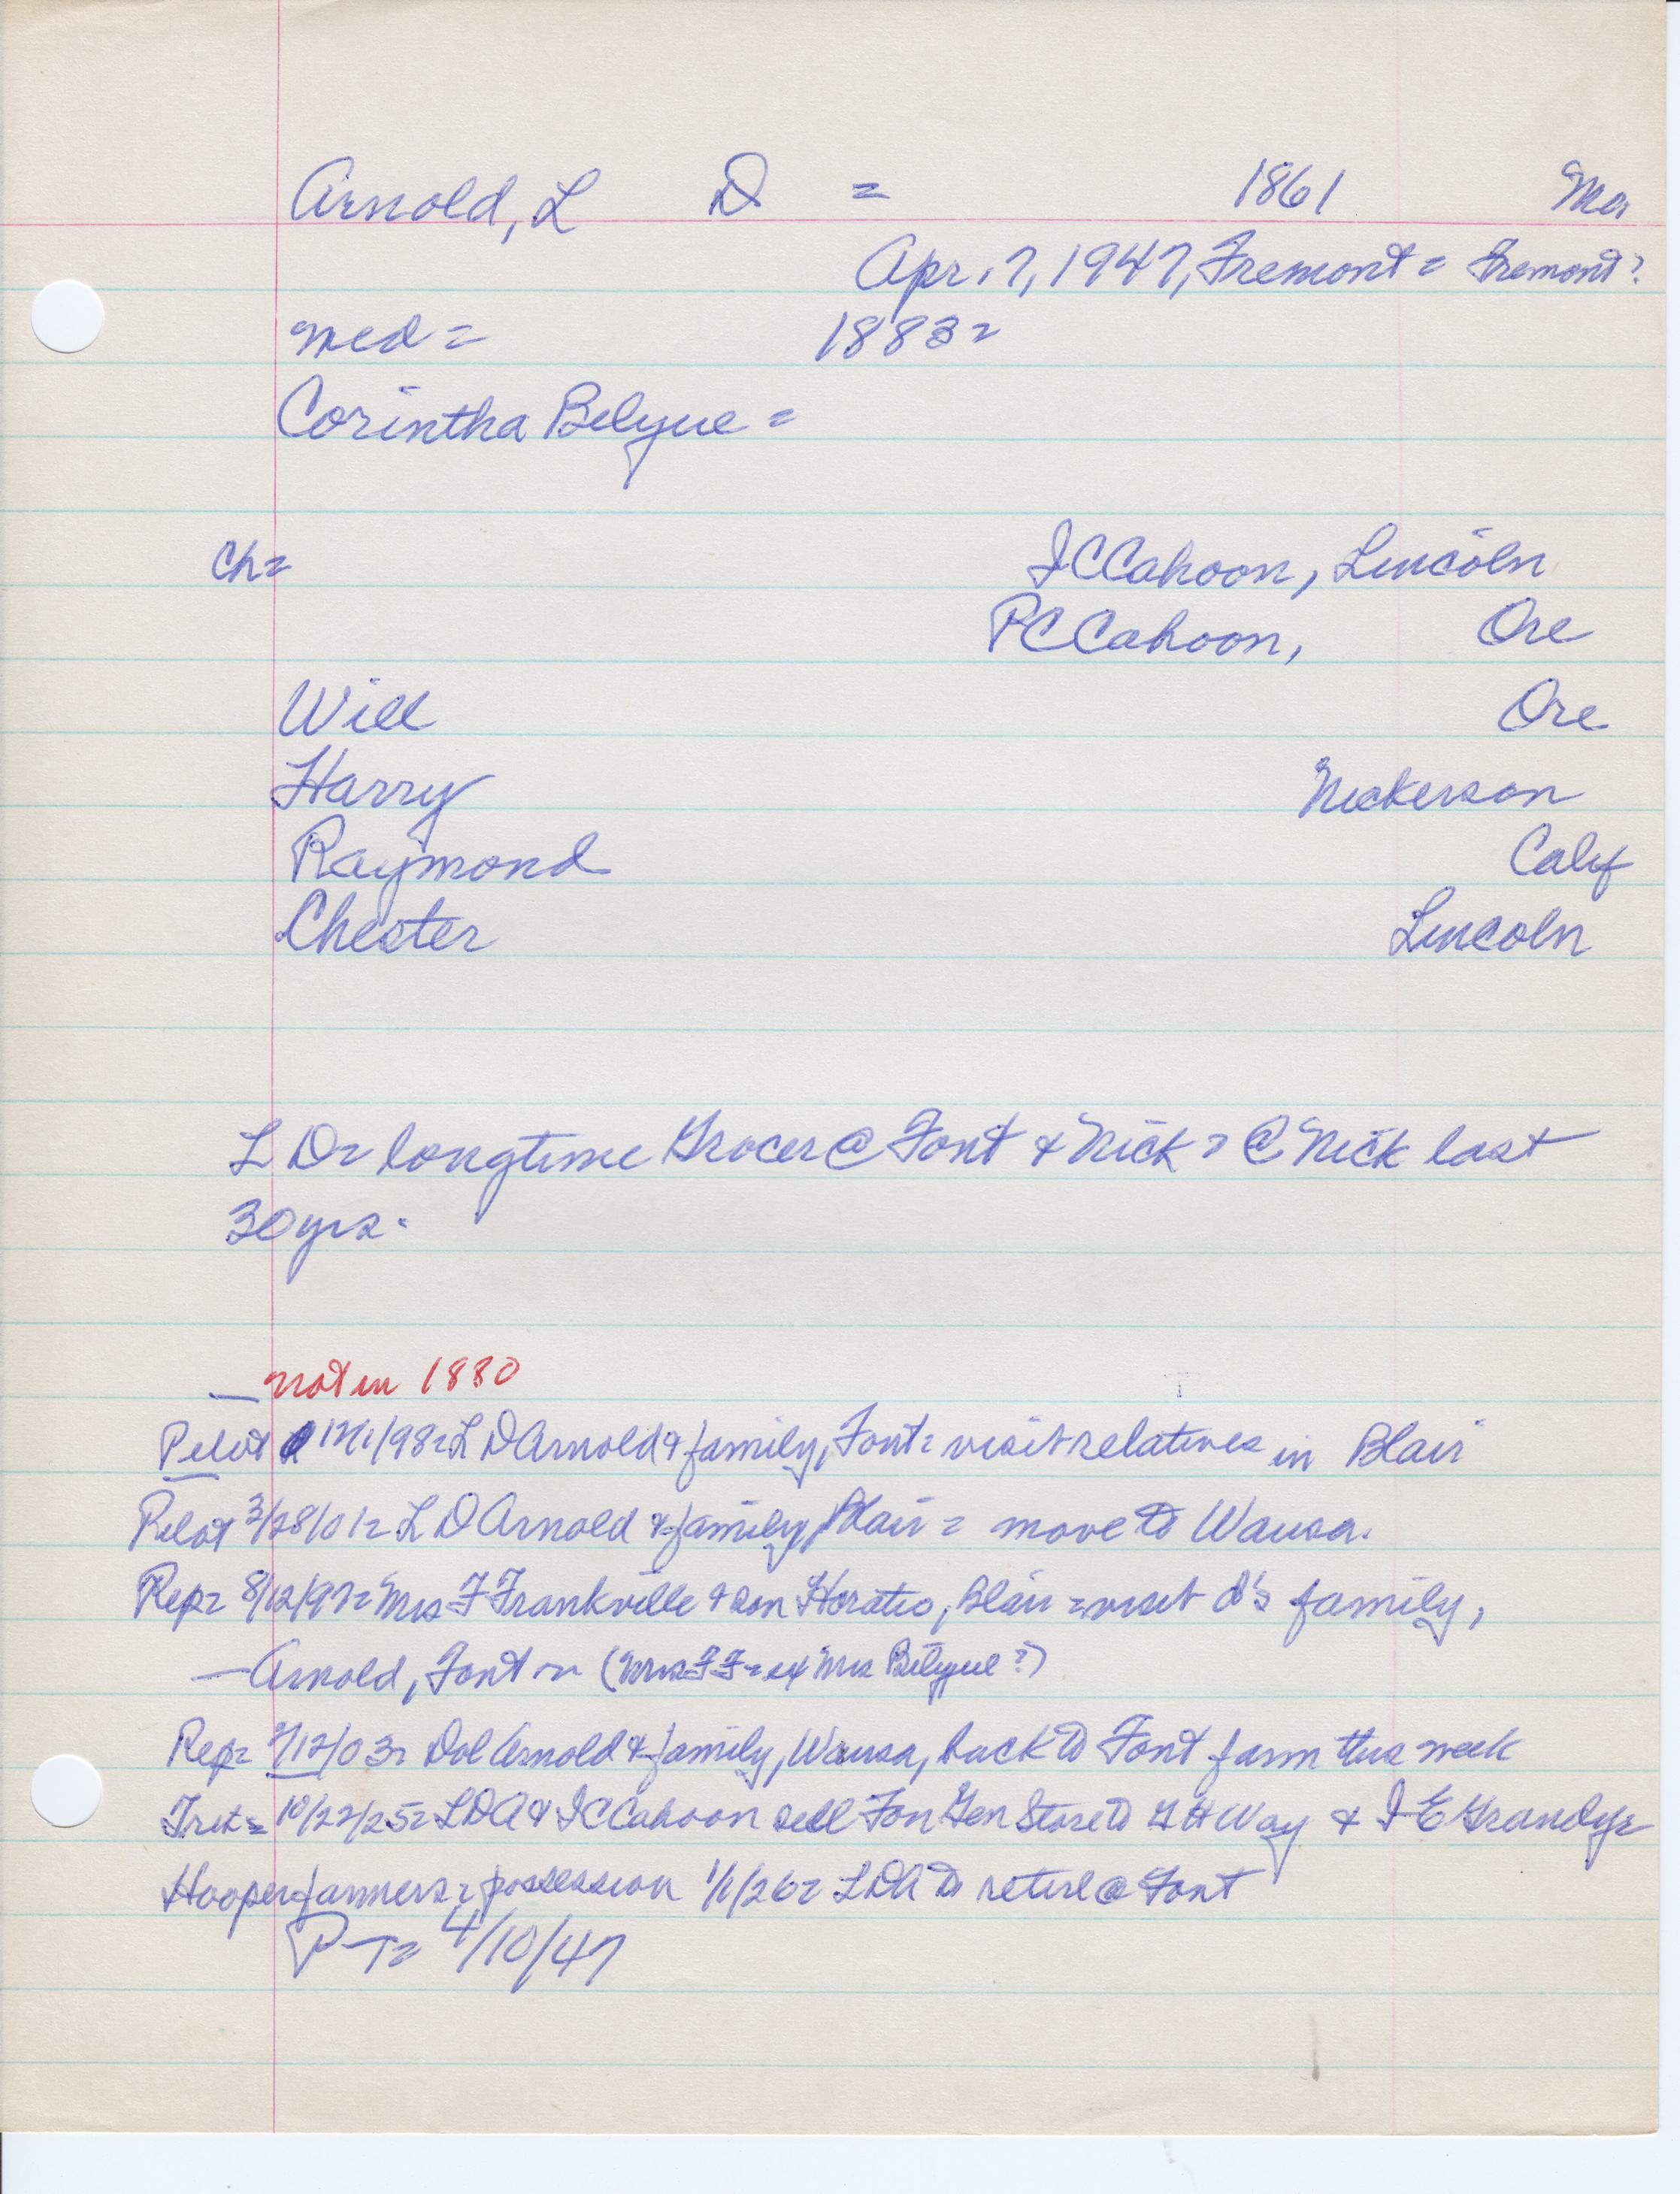 Arnold, L D = 1861 Mo
Apr. 7, 1947, Fremont = Fremont?
med = 1883 =
Corintha Belyue =
Ch= J C Cahoon, Lincoln
P C Cahoon, Ore
Will Ore
Harry Nickerson
Raymond Calif
Chester Lincoln
L D = longtime Grocer @ Font & Nick = @ Nick last
30 yrs.
— not in 1880
Pilot 12/1/98 = L D Arnold & family, Font = visit relatives in Blair
Pilot 3/28/01 = L D Arnold & family, Blair = move to Wausa.
Rep = 8/12/97 = Mrs F Frankville & son Horatio, Blair = visit d's family,
— Arnold, Font ~ (Mrs F F = ex Mrs Belyue?)
Rep = 9/12/03 = Dol Arnold & family, Wausa, back to Font farm this week
Trib = 10/22/25 = L D A & J C Cahoon sell Fon Gen Store to G H Way & J E Grandy =
Hooper farmers = possession 1/1/26 = L D A to retire @ Font
P-T = 4/10/47